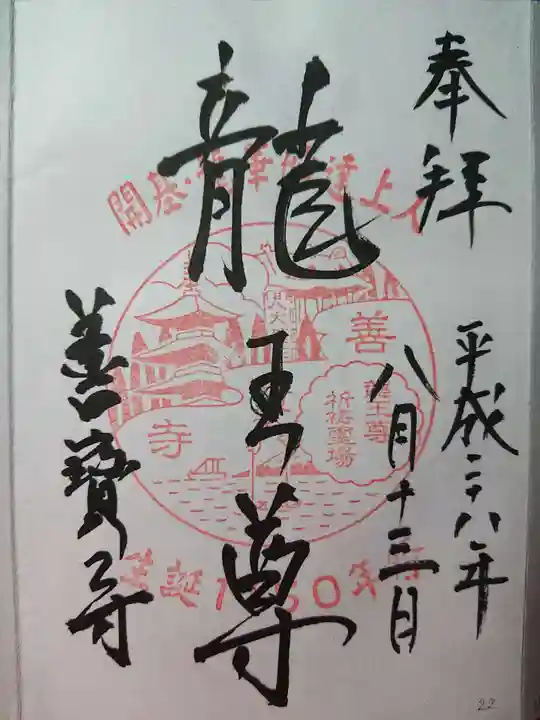 奉拝
平成二十八年
八月十三日
龍王尊
善寳寺
開基・龍華妙達上人
善
寺
龍王尊
祈祷霊場
22